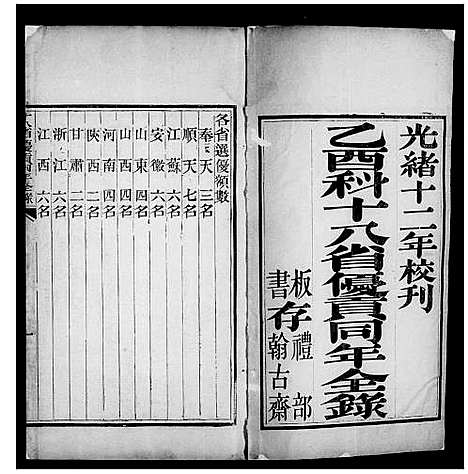 光緒十二年校刊
乙酉科十八省優貢同年全錄
板存禮部
書翰古齋
各省選優額數
奉天三名
順天七名
江蘇六名
安徽六名
山東四名
山西四名
河南四名
陝西二名
甘肅二名
浙江六名
江西六名